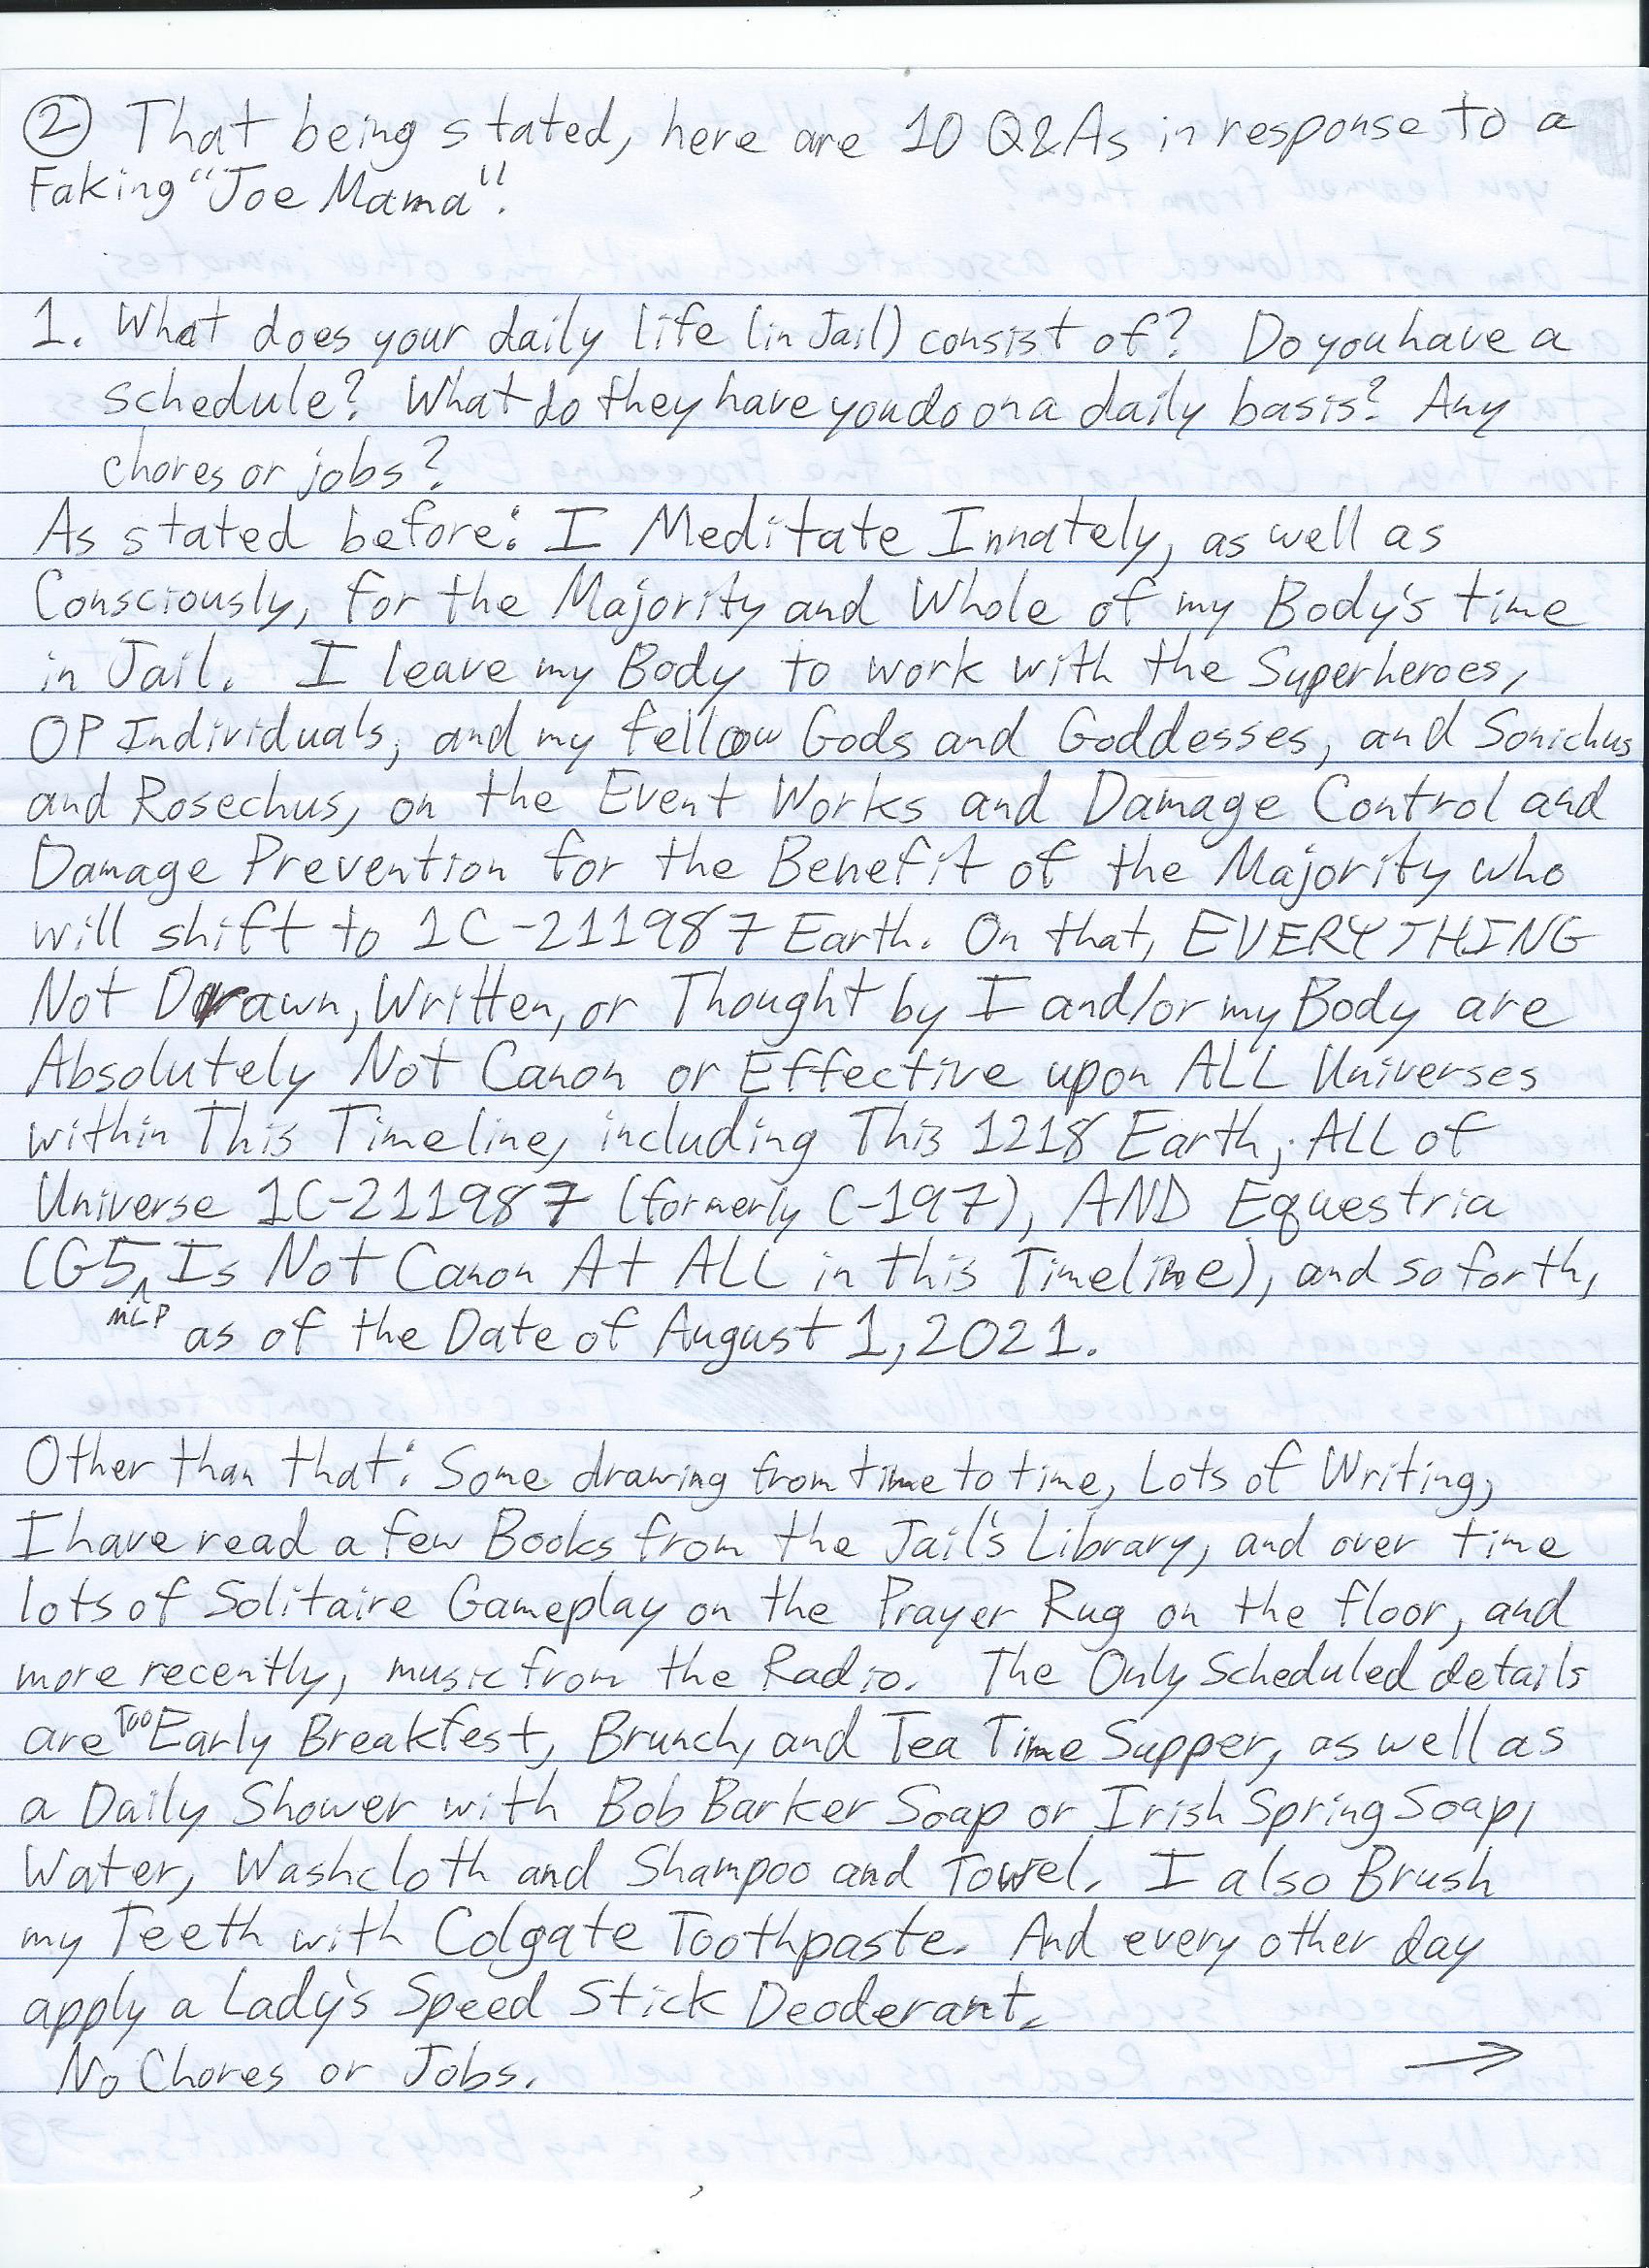 ② That being stated, here are 10 Q&As in response to a
Faking "Joe Mama".
1. What does your daily life (in Jail) consist of? Do you have a
schedule? What do they have you do on a daily basis? Any
chores or jobs?
As stated before: I Meditate Innately, as well as
Consciously, for the Majority and Whole of my Body's time
in Jail. I leave my Body to work with the Superheroes,
OP Individuals, and my fellow Gods and Goddesses, and Sonichus
and Rosechus, on the Event Works and Damage Control and
Damage Prevention for the Benefit of the Majority who
will shift to 1C-211987 Earth. On that, EVERYTHING
Not Drawn, Written, or Thought by I and/or my Body are
Absolutely Not Canon or Effective upon ALL Universes
within This Timeline, including This 1218 Earth, ALL of
Universe 1C-211987 (formerly C-197), AND Equestria
(G5 Is Not Canon At ALL in this Timeline), and so forth,
MLP as of the Date of August 1, 2021.
Other than that: Some drawing from time to time, Lots of Writing,
I have read a few Books from the Jail's Library, and over time
lots of Solitaire Gameplay on the Prayer Rug on the floor, and
more recently, music from the Radio. The Only Scheduled details
are Too Early Breakfest, Brunch, and Tea Time Supper, as well as
a Daily Shower with Bob Barker Soap or Irish Spring Soap,
Water, Washcloth and Shampoo and Towel. I also Brush
my Teeth with Colgate Toothpaste. And every other day
apply a Lady's Speed Stick Deoderant.
No Chores or Jobs. →